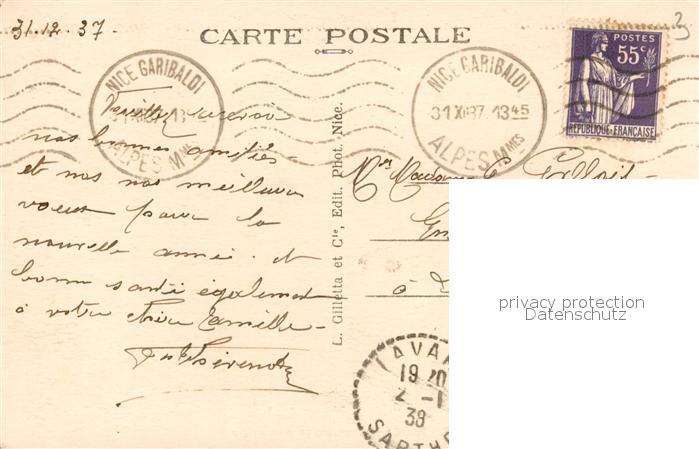 31.12.37-
CARTE POSTALE
3
POSTES
55c
REPUBLIQUE FRANÇAISE
NICE GARIBALDI
ALPES Mmes
NICE GARIBALDI
31 XII 37 13 45
ALPES Mmes
Veuillez recevoir
nos bonnes amitiés
et nos meilleurs
voeux pour la
nouvelle année et
bonne santé également
à votre chère famille-
L. Gilletta et Cie, Edit. Phot. Nice.
à
AVA
19 20
2 -1
38
SARTHE
privacy protection
Datenschutz